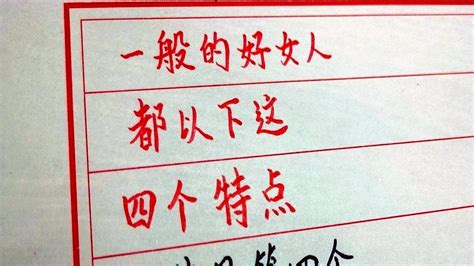 一般的好女人
都以下这
四个特点
第四个